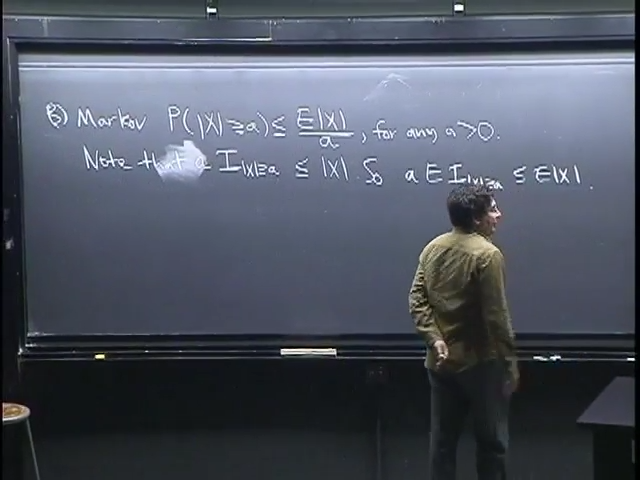 3) Markov P(|X| ≥ a) ≤ E|X|/a, for any a > 0.
Note that a I_{|X| ≥ a} ≤ |X|. So a E I_{|X| ≥ a} ≤ E|X|.